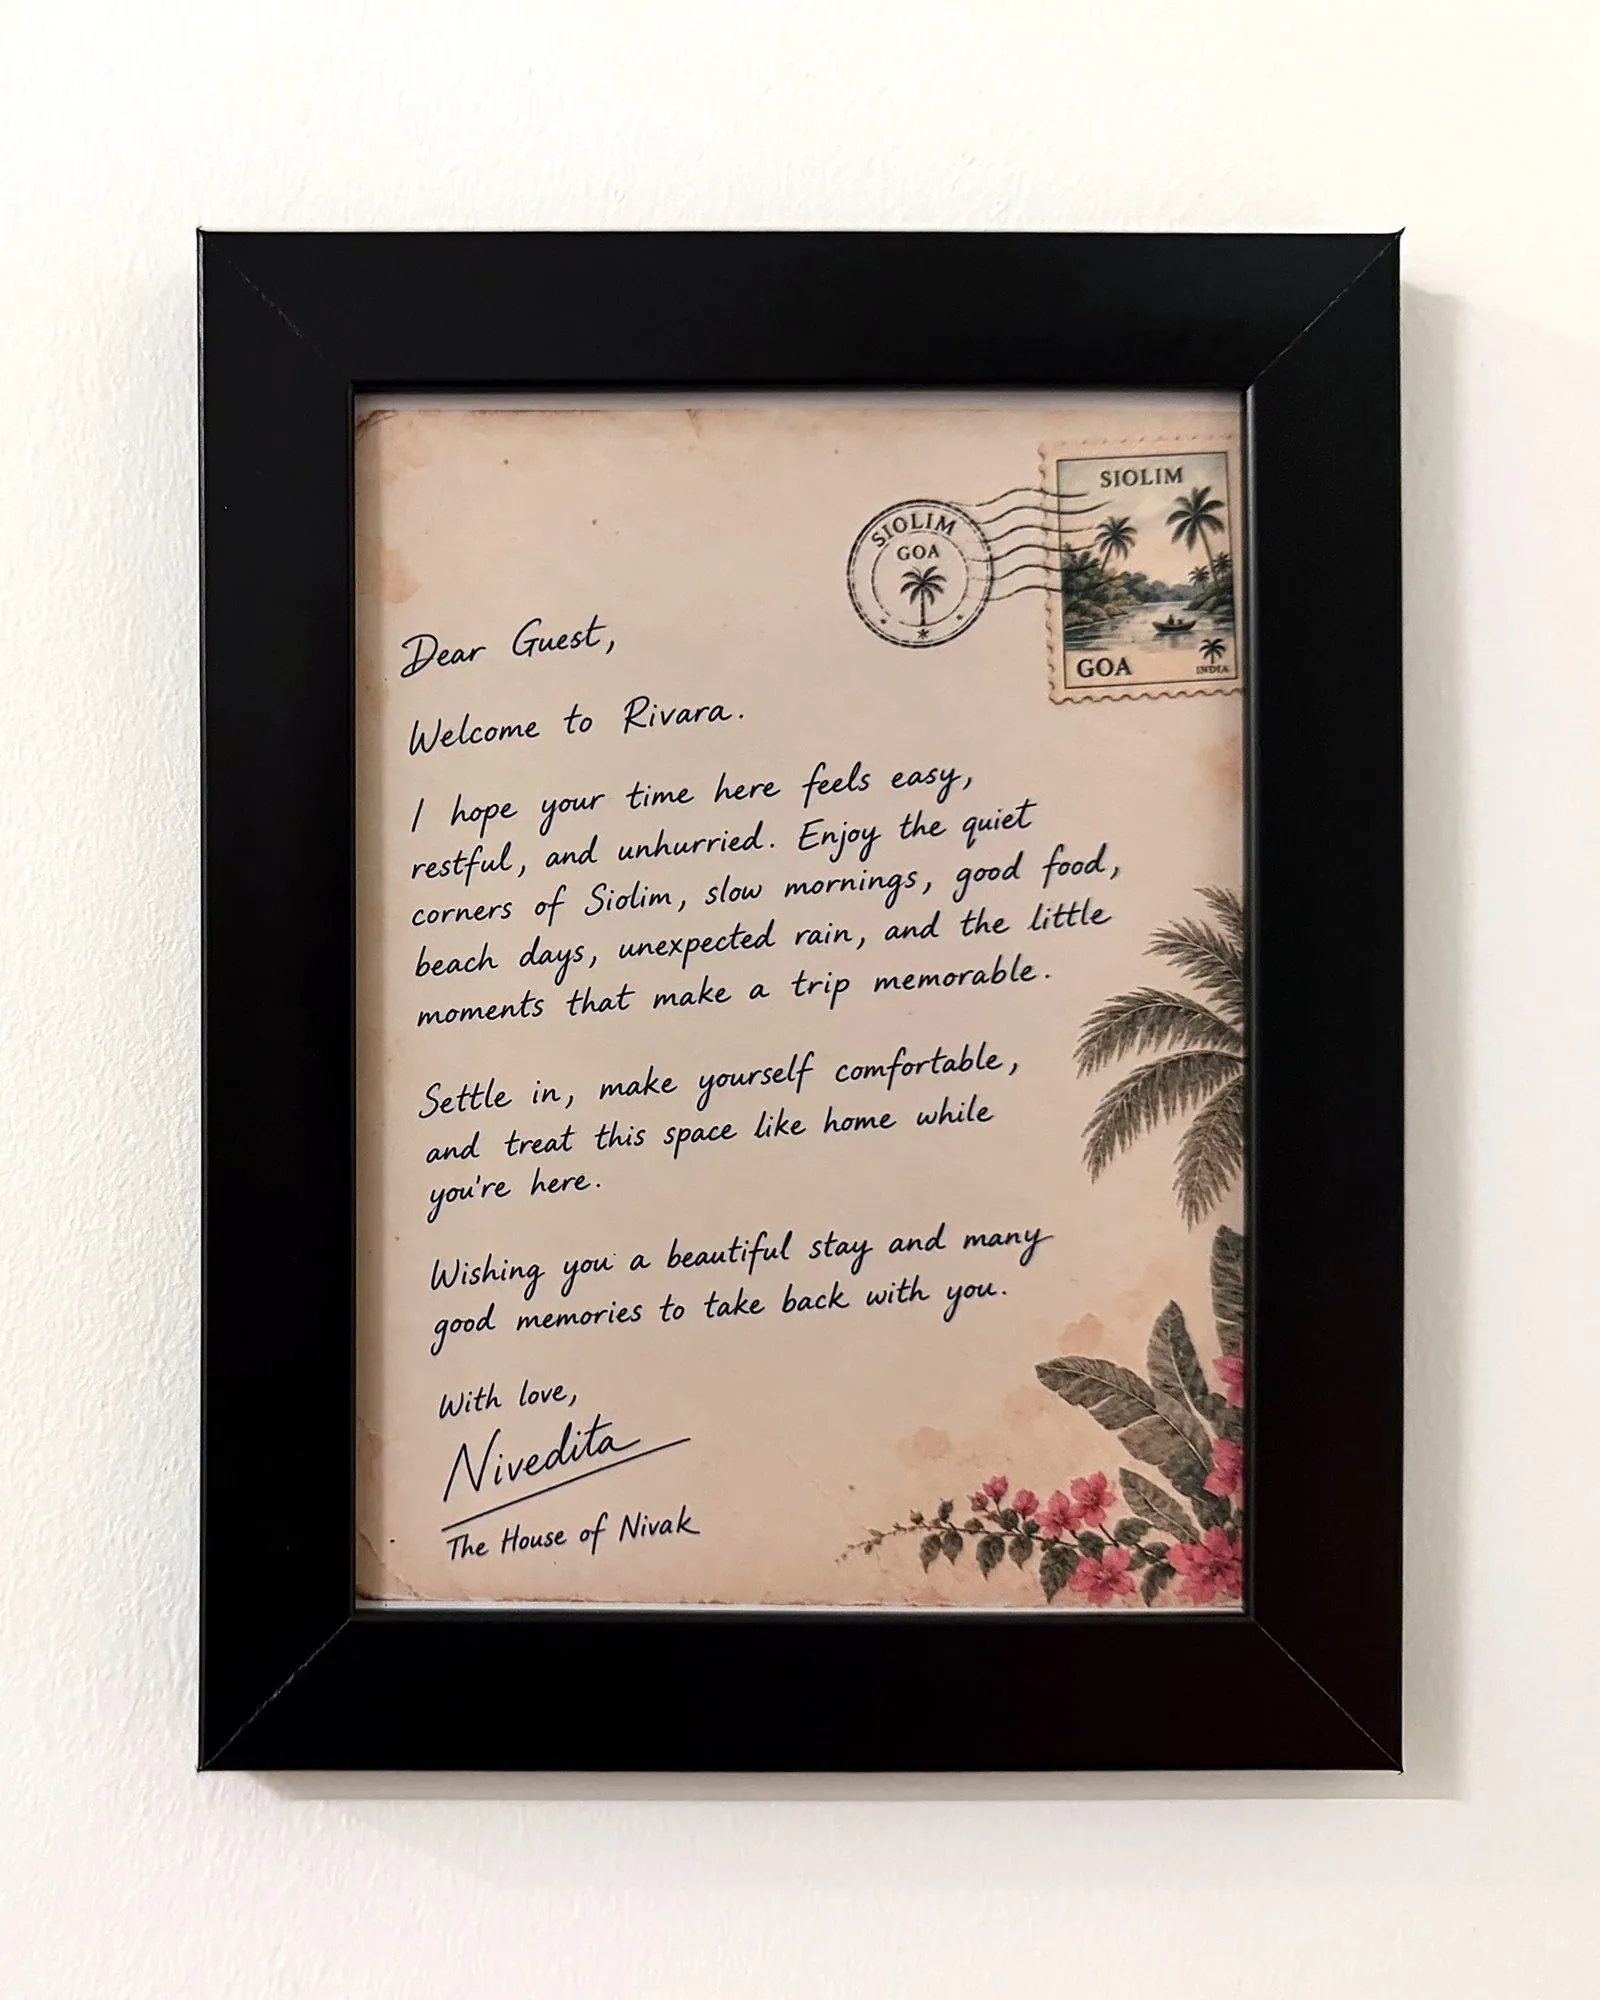 SIOLIM
GOA
SIOLIM
GOA
INDIA
Dear Guest,
Welcome to Rivara.
I hope your time here feels easy,
restful, and unhurried. Enjoy the quiet
corners of Siolim, slow mornings, good food,
beach days, unexpected rain, and the little
moments that make a trip memorable.
Settle in, make yourself comfortable,
and treat this space like home while
you're here.
Wishing you a beautiful stay and many
good memories to take back with you.
With love,
Nivedita
The House of Nivak